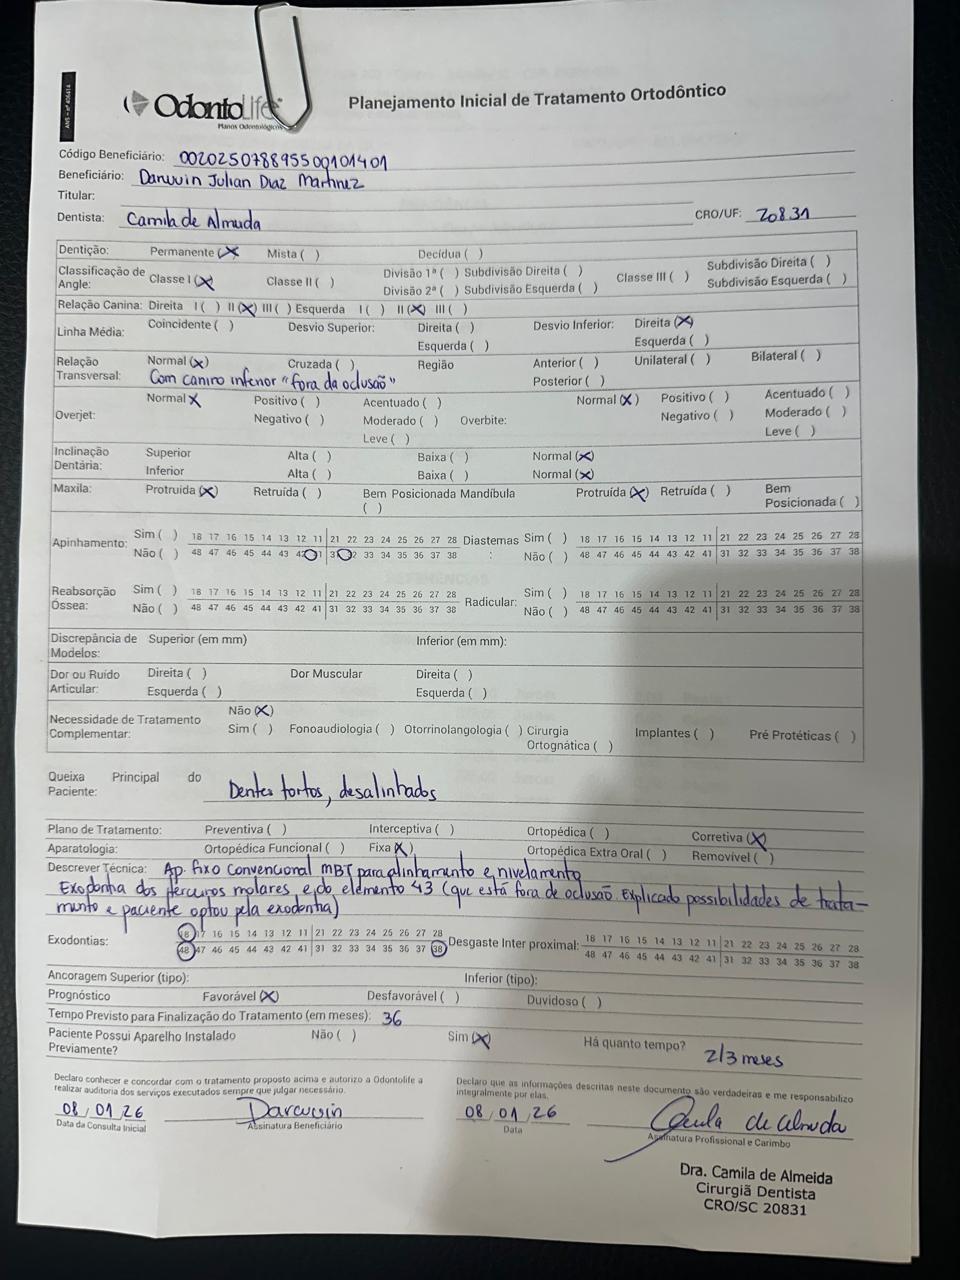 ANS - nº 406414
OdontoLife
Planos Odontológicos
Planejamento Inicial de Tratamento Ortodôntico
Código Beneficiário: 002025078895500101401
Beneficiário: Darwin Julian Diaz Martinez
Titular:
Dentista: Camila de Almeida CRO/UF: 20831
Dentição: Permanente (X) Mista ( ) Decídua ( )
Classificação de Angle: Classe I (X) Classe II ( ) Divisão 1ª ( ) Subdivisão Direita ( ) Classe III ( ) Subdivisão Direita ( )
Divisão 2ª ( ) Subdivisão Esquerda ( ) Subdivisão Esquerda ( )
Relação Canina: Direita I ( ) II (X) III ( ) Esquerda I ( ) II (X) III ( )
Linha Média: Coincidente ( ) Desvio Superior: Direita ( ) Desvio Inferior: Direita (X)
Esquerda ( ) Esquerda ( )
Relação Transversal: Normal (X) Cruzada ( ) Região Anterior ( ) Unilateral ( ) Bilateral ( )
Com canino inferior "fora da oclusão" Posterior ( )
Overjet: Normal X Positivo ( ) Acentuado ( ) Overbite: Normal (X) Positivo ( ) Acentuado ( )
Negativo ( ) Moderado ( ) Negativo ( ) Moderado ( )
Leve ( ) Leve ( )
Inclinação Dentária: Superior Alta ( ) Baixa ( ) Normal (X)
Inferior Alta ( ) Baixa ( ) Normal (X)
Maxila: Protruida (X) Retruída ( ) Bem Posicionada ( ) Mandíbula Protruída (X) Retruída ( ) Bem Posicionada ( )
Apinhamento: Sim ( ) 18 17 16 15 14 13 12 11 21 22 23 24 25 26 27 28 Diastemas : Sim ( ) 18 17 16 15 14 13 12 11 21 22 23 24 25 26 27 28
Não ( ) 48 47 46 45 44 43 42 41 31 32 33 34 35 36 37 38 Não ( ) 48 47 46 45 44 43 42 41 31 32 33 34 35 36 37 38
Reabsorção Óssea: Sim ( ) 18 17 16 15 14 13 12 11 21 22 23 24 25 26 27 28 Radicular: Sim ( ) 18 17 16 15 14 13 12 11 21 22 23 24 25 26 27 28
Não ( ) 48 47 46 45 44 43 42 41 31 32 33 34 35 36 37 38 Não ( ) 48 47 46 45 44 43 42 41 31 32 33 34 35 36 37 38
Discrepância de Modelos: Superior (em mm) Inferior (em mm):
Dor ou Ruído Articular: Direita ( ) Dor Muscular Direita ( )
Esquerda ( ) Esquerda ( )
Necessidade de Tratamento Complementar: Não (X)
Sim ( ) Fonoaudiologia ( ) Otorrinolangologia ( ) Cirurgia Ortognática ( ) Implantes ( ) Pré Protéticas ( )
Queixa Principal do Paciente: Dentes tortos, desalinhados
Plano de Tratamento: Preventiva ( ) Interceptiva ( ) Ortopédica ( ) Corretiva (X)
Aparatologia: Ortopédica Funcional ( ) Fixa (X) Ortopédica Extra Oral ( ) Removível ( )
Descrever Técnica: Ap. fixo convencional MBT para alinhamento e nivelamento
Exodontia dos terceiros molares e do elemento 43 (que está fora de oclusão. Explicado possibilidades de trata-
mento e paciente optou pela exodontia)
Exodontias: 18 17 16 15 14 13 12 11 21 22 23 24 25 26 27 28 Desgaste Inter proximal: 18 17 16 15 14 13 12 11 21 22 23 24 25 26 27 28
48 47 46 45 44 43 42 41 31 32 33 34 35 36 37 38 48 47 46 45 44 43 42 41 31 32 33 34 35 36 37 38
Ancoragem Superior (tipo): Inferior (tipo):
Prognóstico Favorável (X) Desfavorável ( ) Duvidoso ( )
Tempo Previsto para Finalização do Tratamento (em meses): 36
Paciente Possui Aparelho Instalado Previamente? Não ( ) Sim (X) Há quanto tempo? 2/3 meses
Declaro conhecer e concordar com o tratamento proposto acima e autorizo a Odontolife a
realizar auditoria dos serviços executados sempre que julgar necessário.
Declaro que as informações descritas neste documento são verdadeiras e me responsabilizo
integralmente por elas.
08/01/26 Darwin 08/01/26 Camila de Almeida
Data da Consulta Inicial Assinatura Beneficiário Data Assinatura Profissional e Carimbo
Dra. Camila de Almeida
Cirurgiã Dentista
CRO/SC 20831